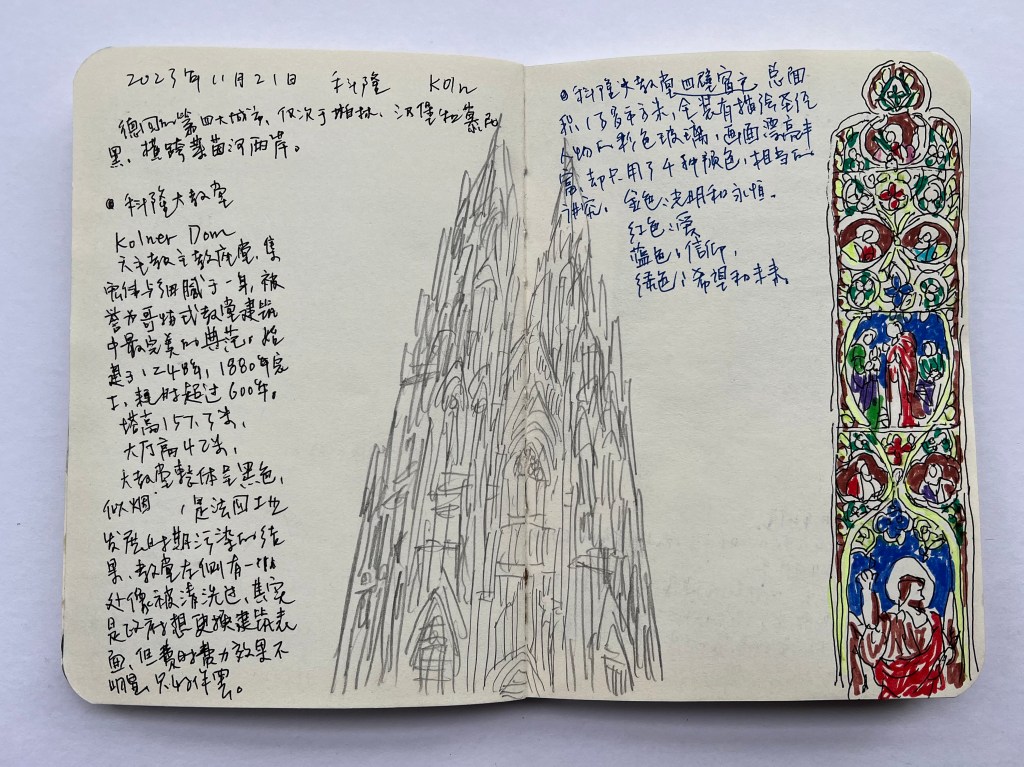 2023年11月21日 科隆 Koln
德国第四大城市，仅次于柏林、汉堡和慕尼
黑，横跨莱茵河两岸。
科隆大教堂
Kolner Dom
天主教主教座堂，集
宏伟与细腻于一身，被
誉为哥特式教堂建筑
中最完美的典范。始
建于1248年，1880年完
工，耗时超过600年。
塔高157.3米，
大厅高42米，
大教堂整体呈黑色，
似烟 ，是法国工业
发展时期污染的结
果，教堂左侧有一小
处像被清洗过，其实
是政府想更换建筑表
面，但费时费力效果不
明显，只好作罢。
科隆大教堂四壁窗户总面
积1万多平方米，全装有描绘圣经
人物的彩色玻璃，画面漂亮丰
富，却只用了4种颜色，相当的
讲究。金色：光明和永恒。
红色：爱
蓝色：信仰，
绿色：希望和未来